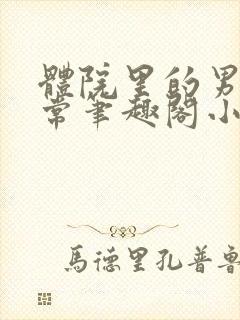 體院里的男
常笔趣阁小
馬德里孔普魯